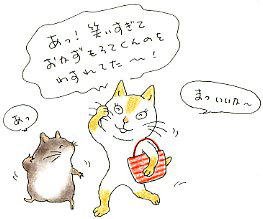 あっ！笑いすぎて
おかずもろてくんのを
わすれてた〜！
まっいいか〜
あっ